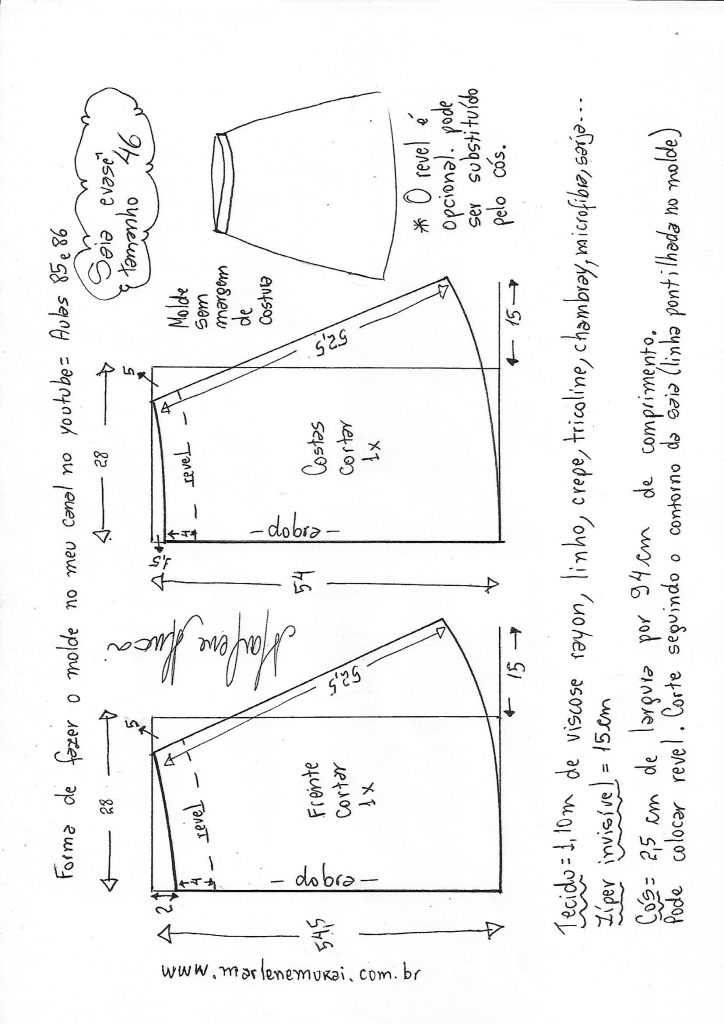 Forma de fazer o molde no meu canal no youtube= Aulas 85 e 86
Saia evasê
tamanho 46
28
28
2
5
1,5
5
4
revel
4
revel
52,5
52,5
Frente
cortar
1x
Costas
cortar
1x
- dobra -
- dobra -
54,5
54
15
15
Marlene Mukai
Molde
sem
margem
de
costura
* O revel é
opcional. pode
ser substituído
pelo cós.
www.marlenemukai.com.br
Tecido = 1,10m de viscose rayon, linho, crepe, tricoline, chambray, microfibra, sarja...
Zíper invisível = 15cm
Cós= 2,5 cm de largura por 94cm de comprimento.
Pode colocar revel. Corte seguindo o contorno da saia (linha pontilhada no molde)